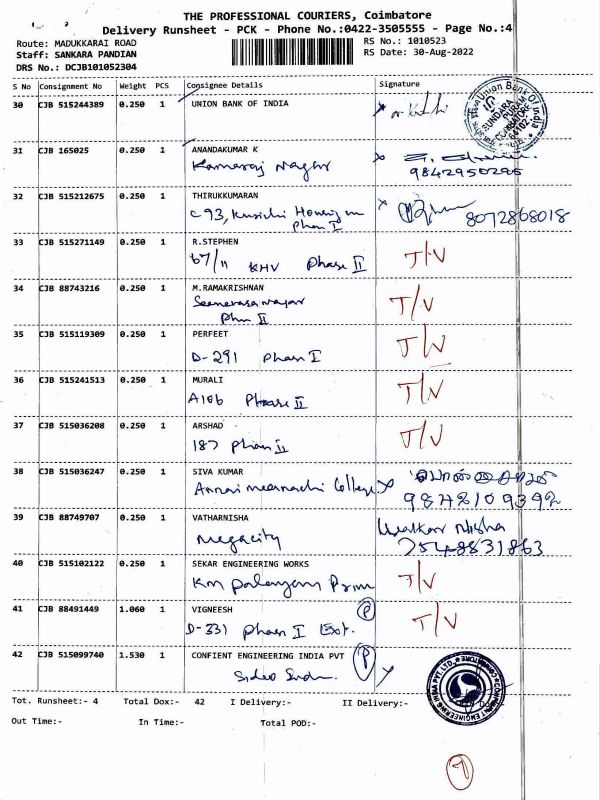 THE PROFESSIONAL COURIERS, Coimbatore
Delivery Runsheet - PCK - Phone No.:0422-3505555 - Page No.:4
Route: MADUKKARAI ROAD RS No.: 1010523
Staff: SANKARA PANDIAN RS Date: 30-Aug-2022
DRS No.: DCJB101052304
S No Consignment No Weight PCS Consignee Details Signature
30 CJB 515244389 0.250 1 UNION BANK OF INDIA
31 CJB 165025 0.250 1 ANANDAKUMAR K
Kamaraj Nagar 9842950295
32 CJB 515212675 0.250 1 THIRUKKUMARAN
C 93, Kurichi Housing un 8072868018
Phase I
33 CJB 515271149 0.250 1 R.STEPHEN
67/11 KHV Phase II T/V
34 CJB 88743216 0.250 1 M.RAMAKRISHNAN
T/V
Phn II
35 CJB 515119309 0.250 1 PERFEET
D-291 Phase I T/V
36 CJB 515241513 0.250 1 MURALI
A106 Phase II T/V
37 CJB 515036208 0.250 1 ARSHAD
187 Phase II T/V
38 CJB 515036247 0.250 1 SIVA KUMAR
College 9848109392
39 CJB 88749707 0.250 1 VATHARNISHA
megacity Nisha
7548831863
40 CJB 515102122 0.250 1 SEKAR ENGINEERING WORKS
Km palayam T/V
41 CJB 88491449 1.060 1 VIGNEESH P
D-331 Phase I Ext. T/V
42 CJB 515099740 1.530 1 CONFIENT ENGINEERING INDIA PVT P
Sidco
Tot. Runsheet:- 4 Total Dox:- 42 I Delivery:- II Delivery:-
Out Time:- In Time:- Total POD:-